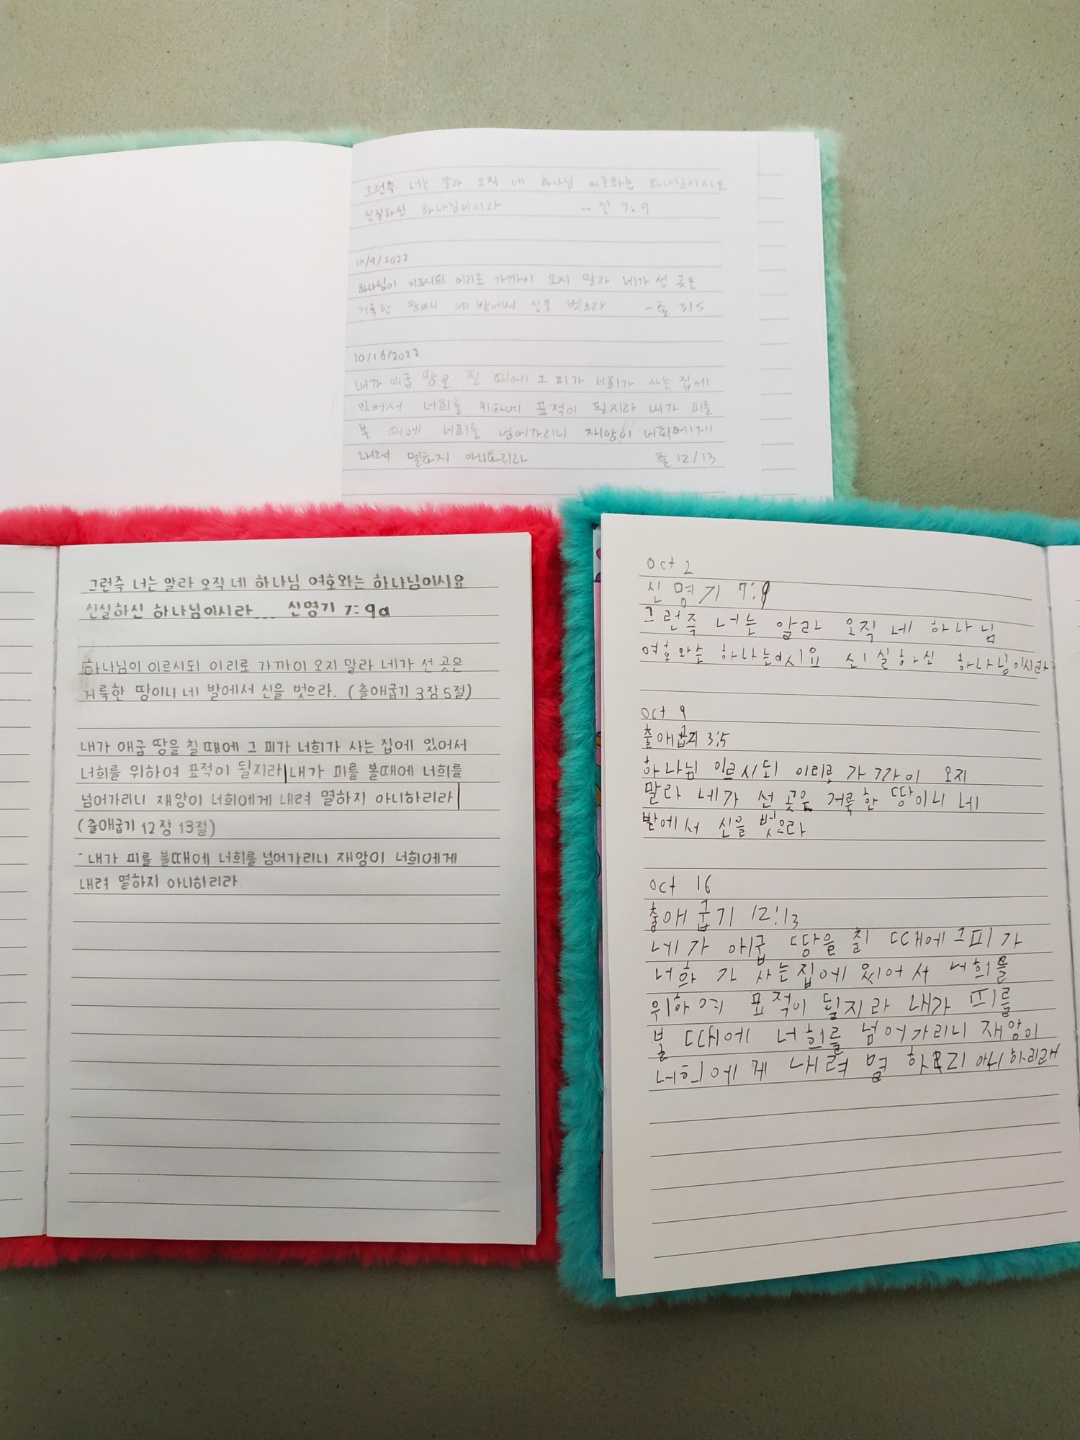 그런즉 너는 알라 오직 네 하나님 여호와는 하나님이시요
신실하신 하나님이시라 - 신 7.9
10/9/2022
하나님이 이르시되 이리로 가까이 오지 말라 네가 선 곳은
거룩한 땅이니 네 발에서 신을 벗으라 - 출 3/5
10/16/2022
내가 애굽 땅을 칠 때에 그 피가 너희가 사는 집에
있어서 너희를 위하여 표적이 될지라 내가 피를
볼 때에 너희를 넘어가리니 재앙이 너희에게
내려 멸하지 아니하리라 출 12/13
그런즉 너는 알라 오직 네 하나님 여호와는 하나님이시요
신실하신 하나님이시라... 신명기 7:9a
하나님이 이르시되 이리로 가까이 오지 말라 네가 선 곳은
거룩한 땅이니 네 발에서 신을 벗으라. (출애굽기 3장 5절)
내가 애굽 땅을 칠 때에 그 피가 너희가 사는 집에 있어서
너희를 위하여 표적이 될지라|내가 피를 볼때에 너희를
넘어가리니 재앙이 너희에게 내려 멸하지 아니하리라|
(출애굽기 12장 13절)
- 내가 피를 볼때에 너희를 넘어가리니 재앙이 너희에게
내려 멸하지 아니하리라
Oct 2
신명기 7:9
그런즉 너는 알라 오직 네 하나님
여호와는 하나는이시요 신실하신 하나님이시라
Oct 9
출애굽기 3:5
하나님 이르시되 이리로 가까이 오지
말라 네가 선 곳은 거룩한 땅이니 네
발에서 신을 벗으라
Oct 16
출애굽기 12:13
네가 애굽 땅을 칠 때에 그피가
너희가 사는 집에 있어서 너희를
위하여 표적이 될지라 내가 피를
볼 때에 너희를 넘어가리니 재앙이
너희에게 내려 멸 아니하리라